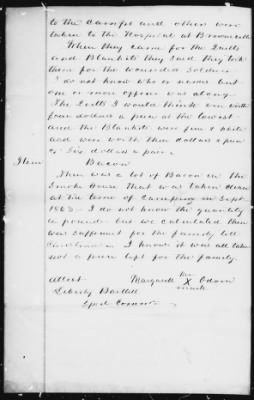 to the camp and others were
taken to the Hospital at Brownsville
When they came for the Quilts
and Blankets they said they took
them for the wounded soldiers
I do not know who or names but
one or more officers was along
The Quilts I would think were worth
four dollars a piece at the lowest
and the Blankets were fine & white
and were worth three dollars a piece
or Six dollars a pair
Item Bacon
There was a lot of Bacon in the
Smoke House that was taken down
at the time of Camping in Sept
1863 - I do not know the quantity
in pounds but we calculated there
was sufficient for the family till
Christmas I know it was all taken
not a piece left for the family
Attest Margarett her X mark Odom
Liberty Bartlett
Spcl Commr